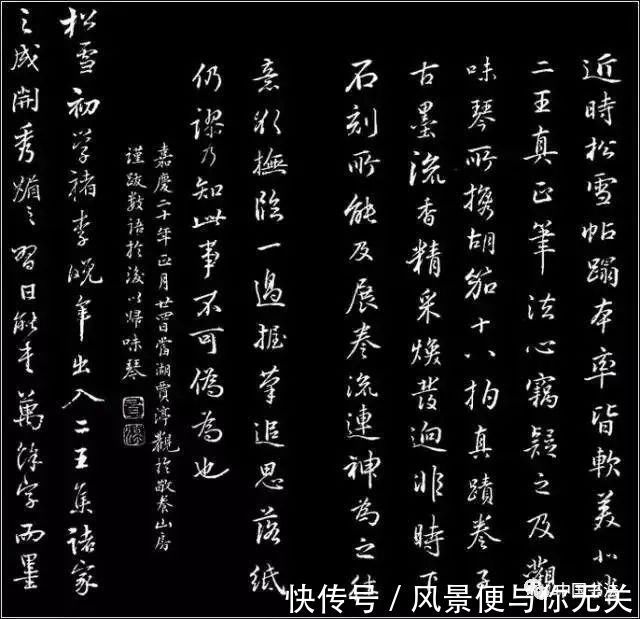 近時松雪帖蹋本率皆軟美非
二王真正筆法心竊疑之及觀
味琴所携胡笳十八拍真蹟卷子
古墨流香精采煥發迥非時下
石刻所能及展卷流連神為之往
意欲撫臨一過握筆追思落紙
仍謬乃知此事不可偽為也
嘉慶二十年正月廿四日當湖賈淳觀於敬義山房
謹跋數語於後以歸味琴
松雪初學褚李晚年出入二王集諸家
之成開秀媚之習日能書萬餘字而墨
中国书法
快传号/风景便与你无关